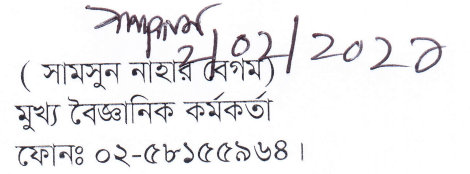 ২/০২/২০২৬
( সামসুন নাহার বেগম)
মুখ্য বৈজ্ঞানিক কর্মকর্তা
ফোনঃ ০২-৫৮১৫৫৯৬৪।